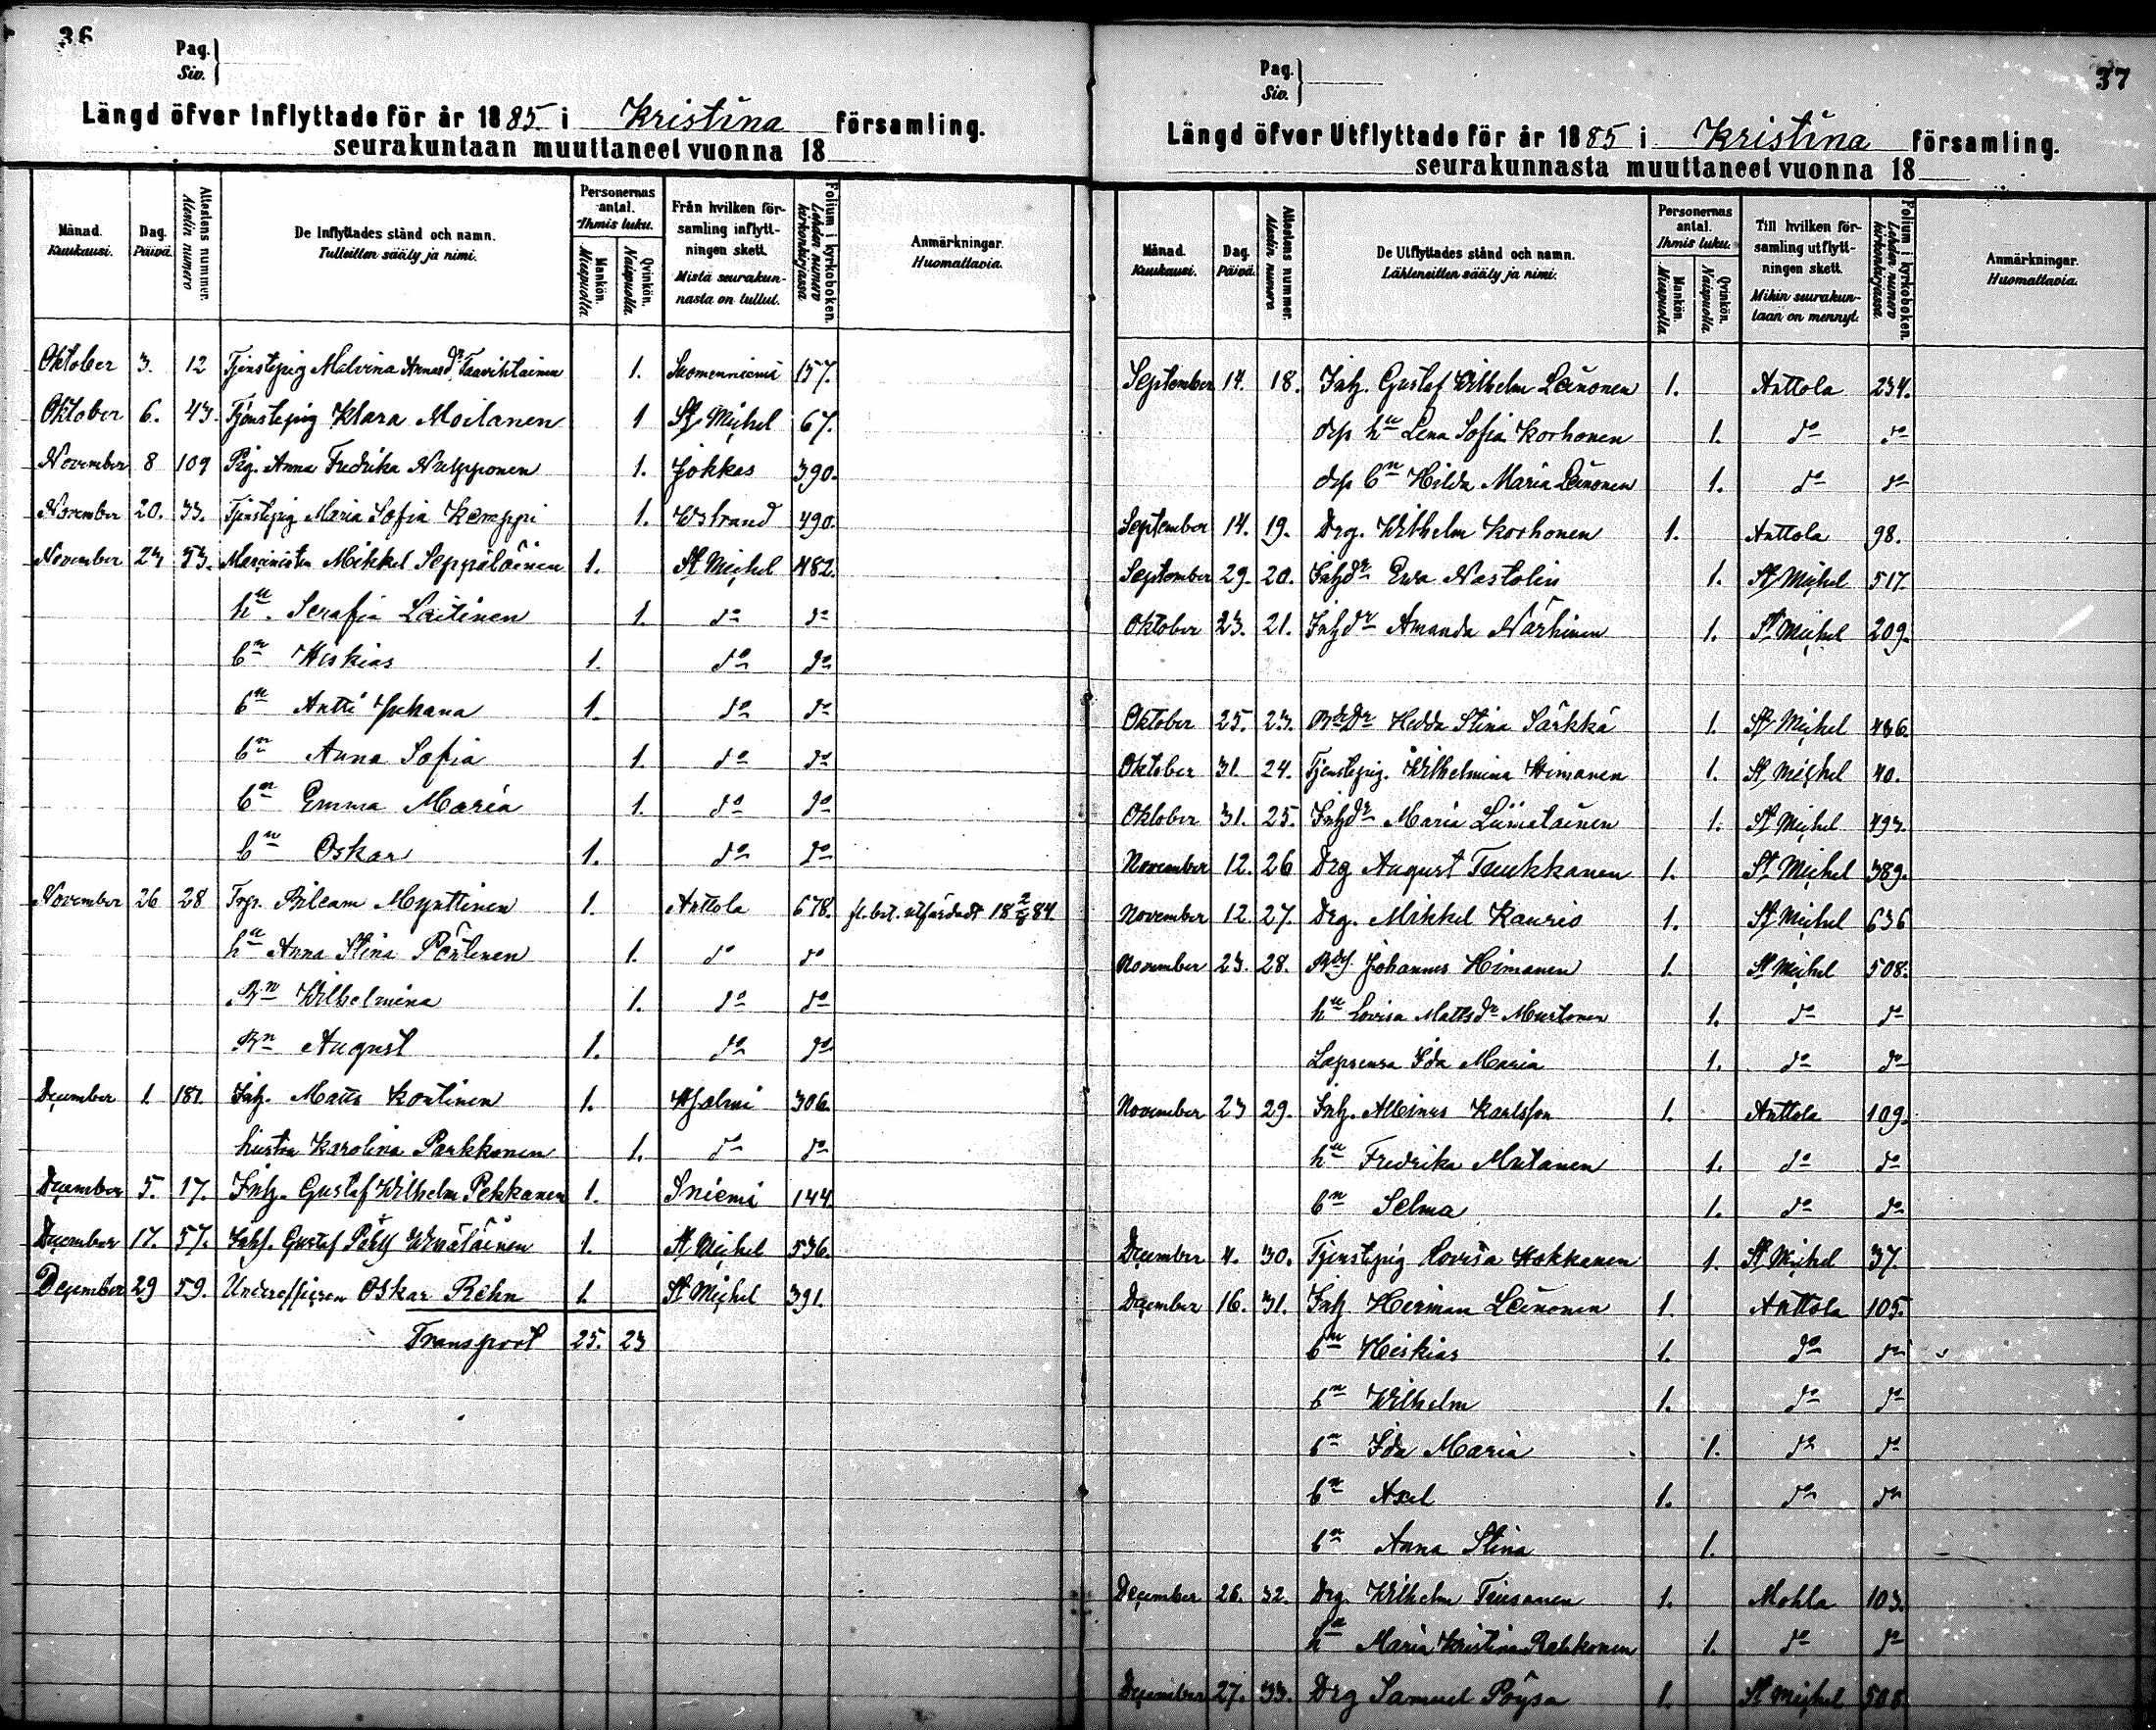 36
Pag.
Siv.
Längd öfver Inflyttade för år 1885 i Kristina församling.
seurakuntaan muuttaneet vuonna 18
Månad. Kuukausi. Dag. Päivä. Attestens nummer. Atestin numero De Inflyttades stånd och namn. Tulleitten sääty ja nimi. Personernas antal. Ihmis luku. Mankön. Miespuolia. Qvinkön. Naispuolia. Från hvilken församling inflyttningen skett. Mistä seurakunnasta on tullut. Folium i kyrkoboken. Lehden numero kirkonkirjassa Anmärkningar. Huomattavia.
Oktober 3. 12 Tjenstepig Malvina Annasdr Taavihtainen 1. Suomenniemi 157.
Oktober 6. 43. Tjenstepig Klara Moilanen 1 St Michel 67.
November 8 109 Pig. Anna Fredrika Nulpponen 1. Jokkas 390.
November 20. 33. Tjenstepig Maria Sofia Kemppi 1. Wstrand 490.
November 23 53. Mikkel Seppäläinen 1. St Michel 482.
hu. Serafia Laitinen 1. do do
bn Heskias 1. do do
bn Antti Juhana 1. do do
bn Anna Sofia 1. do do
bn Emma Maria 1. do do
bn Oskar 1. do do
November 26 28 Trp. Bileam Mynttinen 1. Anttola 678. fl. bet. utfärdadt 18 2/3 84.
hu Anna Stina Pöntinen 1. do do
Bn Wilhelmina 1. do do
Bn August 1. do do
December 1 181. Inh. Matts Kortinen 1. Hjalmi 306.
hustru Karolina Parkkonen 1. do do
December 5. 17. Inh. Gustaf Wilhelm Pekkanen 1. Sniemi 144.
December 17. 57. Gustaf 1. St Michel 536.
December 29 59. Underofficeren Oskar Rehn 1. St Michel 391.
Transport 25. 23
37
Pag.
Siv.
Längd öfver Utflyttade för år 1885 i Kristina församling.
seurakunnasta muuttaneet vuonna 18
Månad. Kuukausi. Dag. Päivä. Attestens nummer. Atestin numero De Utflyttades stånd och namn. Lähteneitten sääty ja nimi. Personernas antal. Ihmis luku. Mankön. Miespuolia. Qvinkön. Naispuolia. Till hvilken församling utflyttningen skett. Mihin seurakuntaan on mennyt. Folium i kyrkoboken. Lehden numero kirkonkirjassa. Anmärkningar. Huomattavia.
September 14. 18. Inh. Gustaf Wilhelm Leinonen 1. Anttola 234.
dess hu Lena Sofia Korhonen 1. do do
dess bn Hilda Maria Leinonen 1. do do
September 14. 19. Drg. Wilhelm Korhonen 1. Anttola 98.
September 29. 20. Inhdr Ewa Nastolin 1. St Michel 517.
Oktober 23. 21. Inhdr Amanda Närhinen 1. St Michel 209.
Oktober 25. 23. Bdr Hedda Stina Särkkä 1. St Michel 436.
Oktober 31. 24. Tjenstepig. Wilhelmina Himanen 1. St Michel 40.
Oktober 31. 25. Inhdr Maria Liimatainen 1. St Michel 493.
November 12. 26 Drg August Tuukkanen 1. St Michel 389.
November 12. 27. Drg. Mikkel Kauris 1. St Michel 636
November 23. 28. Johannes Himanen 1. St Michel 508.
hu Lovisa Mattsdr Mustonen 1. do do
Ida Maria 1. do do
November 23 29. Inh. Karlsson 1. Anttola 109.
hu Fredrika Mutanen 1. do do
bn Selma 1. do do
December 4. 30. Tjenstepig Lovisa Hokkanen 1. St Michel 37.
December 16. 31. Inh Herman Leinonen 1. Anttola 105.
bn Heskias 1. do do
bn Wilhelm 1. do do
bn Ida Maria 1. do do
bn Axel 1. do do
bn Anna Stina 1.
December 26. 32. Drg. Wilhelm Tiusanen 1. Mohla 103.
hu Maria Kristina Rahkonen 1. do do
December 27. 33. Drg Samuel Pöysa 1. St Michel 508.